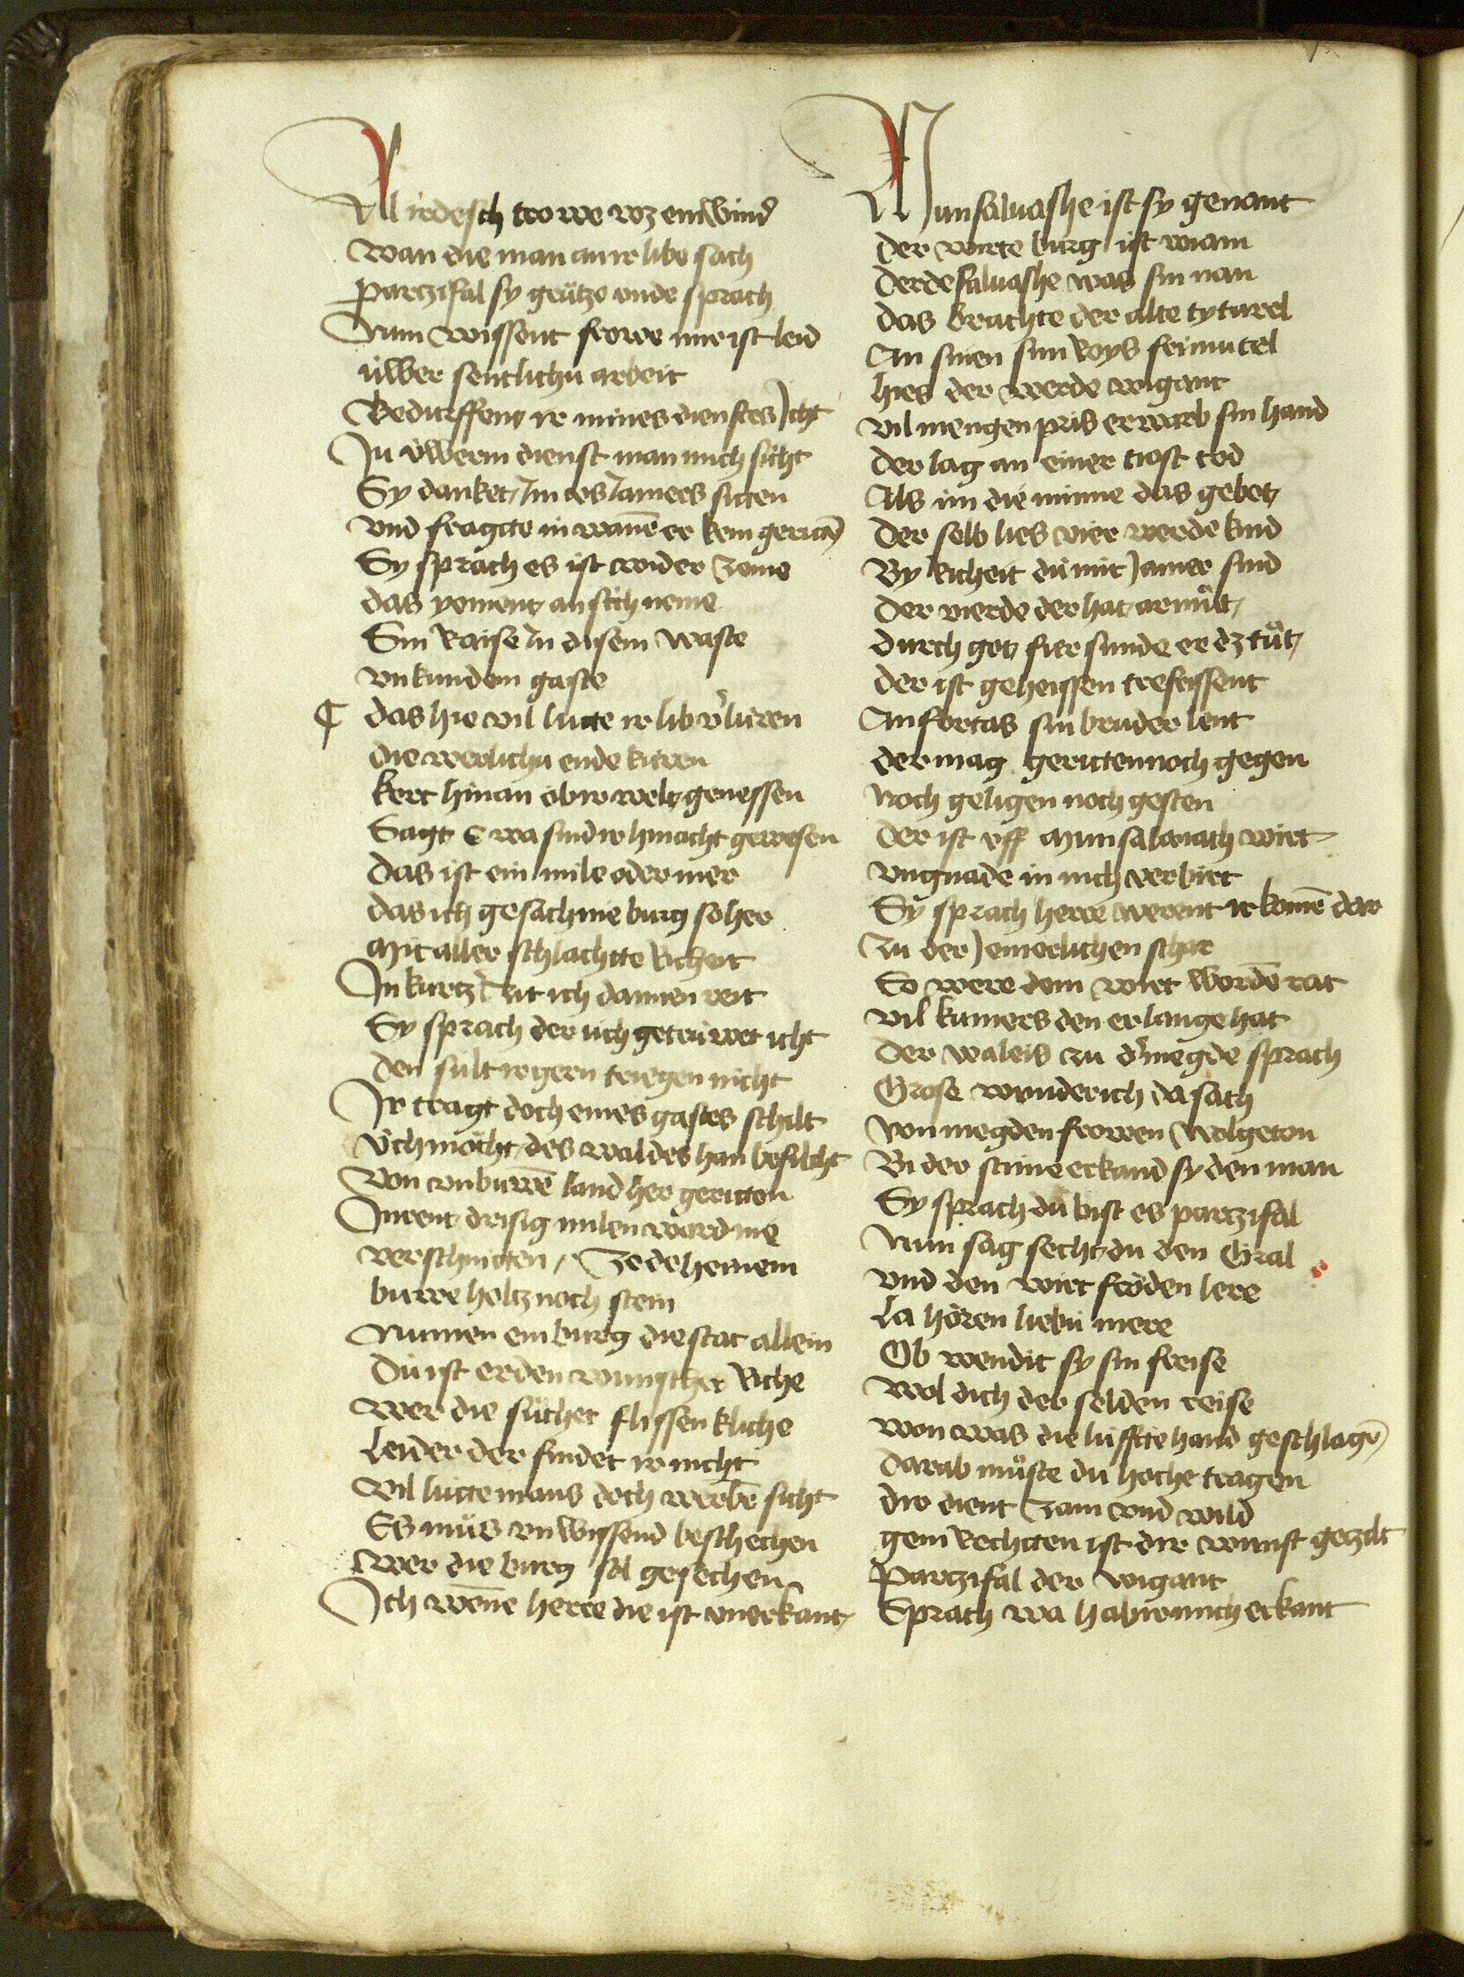 Al irdesch trowe wz ein wind
wan die man an ir libe sach
Partzifal sy grůtze vnde sprach
Num wissent frowe mir ist leid
ůwer sentlichu arbeit
Bedurffent ir mines dienstes Icht
In ůwerm dienst man mich sicht
Sy danket Im vs Iamers sitten
vnd fragtte in wañe er kem geritẽ
Sy sprach es ist wider zeme
das yement an sich neme
Sin Raise In disem waste
vnkundem gaste
¶ das hie vil lutte ir lib v̓luren
die werlichu ende kuren
kert hinan ob ir welt genessen
Sagt E wa sind ir hinacht gewesen
Das ist ein mile oder mer
das ich gesach nie burg so her
Mit aller schlachtte Richeit
In kurtz̓ zit ich dannen reit
Sy sprach der ůch getrůwet icht
den sult ir gern triegen nicht
Ir tragt doch eines gastes schilt
Ůch mocht des waldes han befilcht
Von vnburwẽ land her geritten
Inrent drisig milen ward nie
verschnitten / Ze deheinem
burwe holtz noch stein
Numen ein burg die stat allein
Dů ist erden wunscher Riche
wer die sůchet flissenkliche
Leider der findet ir nicht
Vil lutte mans doch werbẽ sicht
Es můs vnwissend beschechen
wer die burg sol gesechen
Ich wene herre die ist vnerkant
Munsaluashe ist sy genant
der wirte burg ist wiam
Derdesaluashe was sin nan
das brachte der alte tyturel
An sinen sun Roys frimutel
hies der werde wigant
vil mengen pris erwarb sin hand
der lag an einer tiost tod
Als im die minne das gebot
Der selb lies vier werde kind
By Richeit dů mit Iamer sind
Der vierde der hat armůt
durch got fur sunde er dz tůt
der ist geheissen trefrissent
Anfortas sin bruder lent
der mag geritten noch gegen
Noch geligen noch gesten
der ist vff Munsaluach wirt
vngnade in nich verbirt
Sy sprach herre werent ir komẽ dar
zu der Iemerlichen schar
So were dem wirt wordẽ rat
vil kumers den er lange hat
Der waleis zu d̓ megde sprach
Grose wunder ich da sach
von megden frowen Wolgeton
Bi der stime erkand sy den man
Sy sprach du bist es partzifal
Num sag secht du den Gral
vnd den wirt fröden lere
La hören liebu mere
Ob wendit sy sin freise
Wol dich der selden reise
won was die lufftte hand geschlagẽ
darab můste du hoche tragen
dir dient zam vnd wild
gem Rechtten ist dir wunst getzilt
Partzifal der wigant
Sprach wa hab ir mich erkant